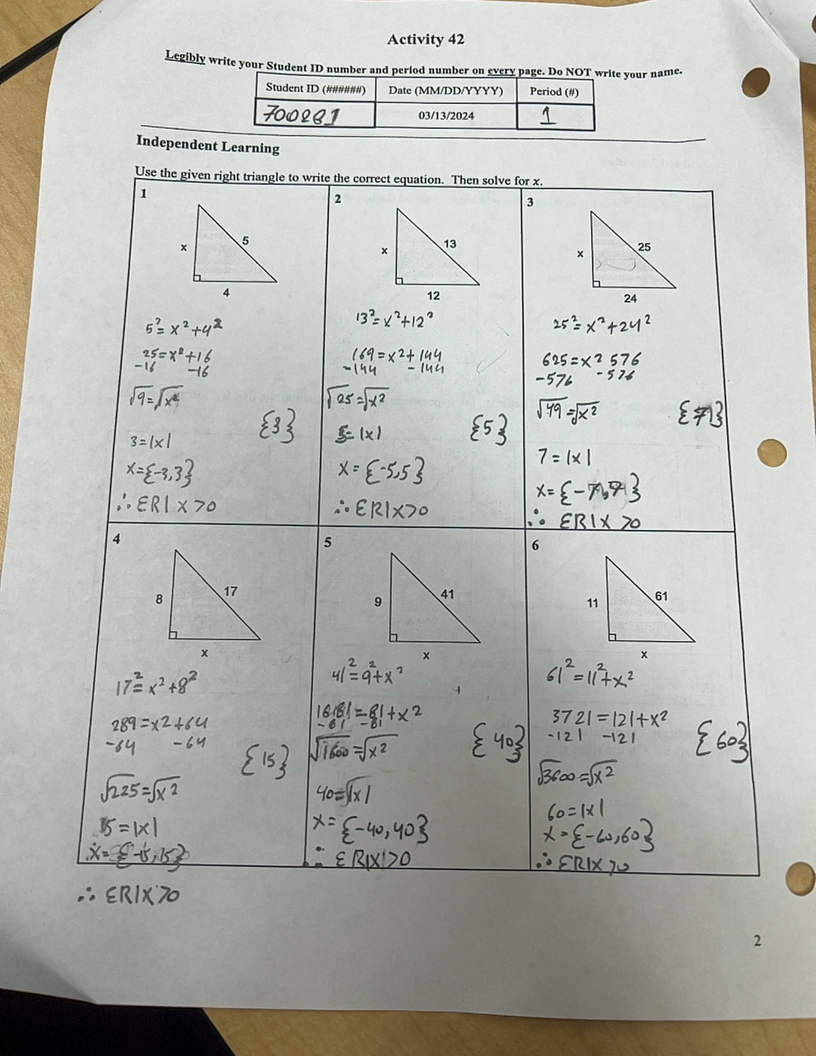 Activity 42
Legibly write your Student ID number and period number on every page. Do NOT write your name.
Student ID (######) Date (MM/DD/YYYY) Period (#)
03/13/2024 1
Independent Learning
Use the given right triangle to write the correct equation. Then solve for x.
1
x 5
4
5²=x²+4²
25=x²+16
-16 -16
√9=√x²
{3}
3=|x|
x={-3,3}
∴ ER|x>0
2
x 13
12
13²=x²+12²
169=x²+144
-144 -144
√25=√x²
5=|x|
{5}
x={-5,5}
∴ ER|x>0
3
x 25
24
25²=x²+24²
625=x² 576
-576 -576
√49=√x²
{7}
7=|x|
x={-7,7}
∴ ER|x>0
4
8 17
x
17²=x²+8²
289=x²+64
-64 -64
{15}
√225=√x²
15=|x|
x={-15,15}
∴ ER|x>0
5
9 41
x
41²=9²+x²
1681=81+x²
-81 -81
√1600=√x²
{40}
40=|x|
x={-40,40}
∴ ER|x>0
6
11 61
x
61²=11²+x²
3721=121+x²
-121 -121
{60}
√3600=√x²
60=|x|
x={-60,60}
∴ ER|x>0
2